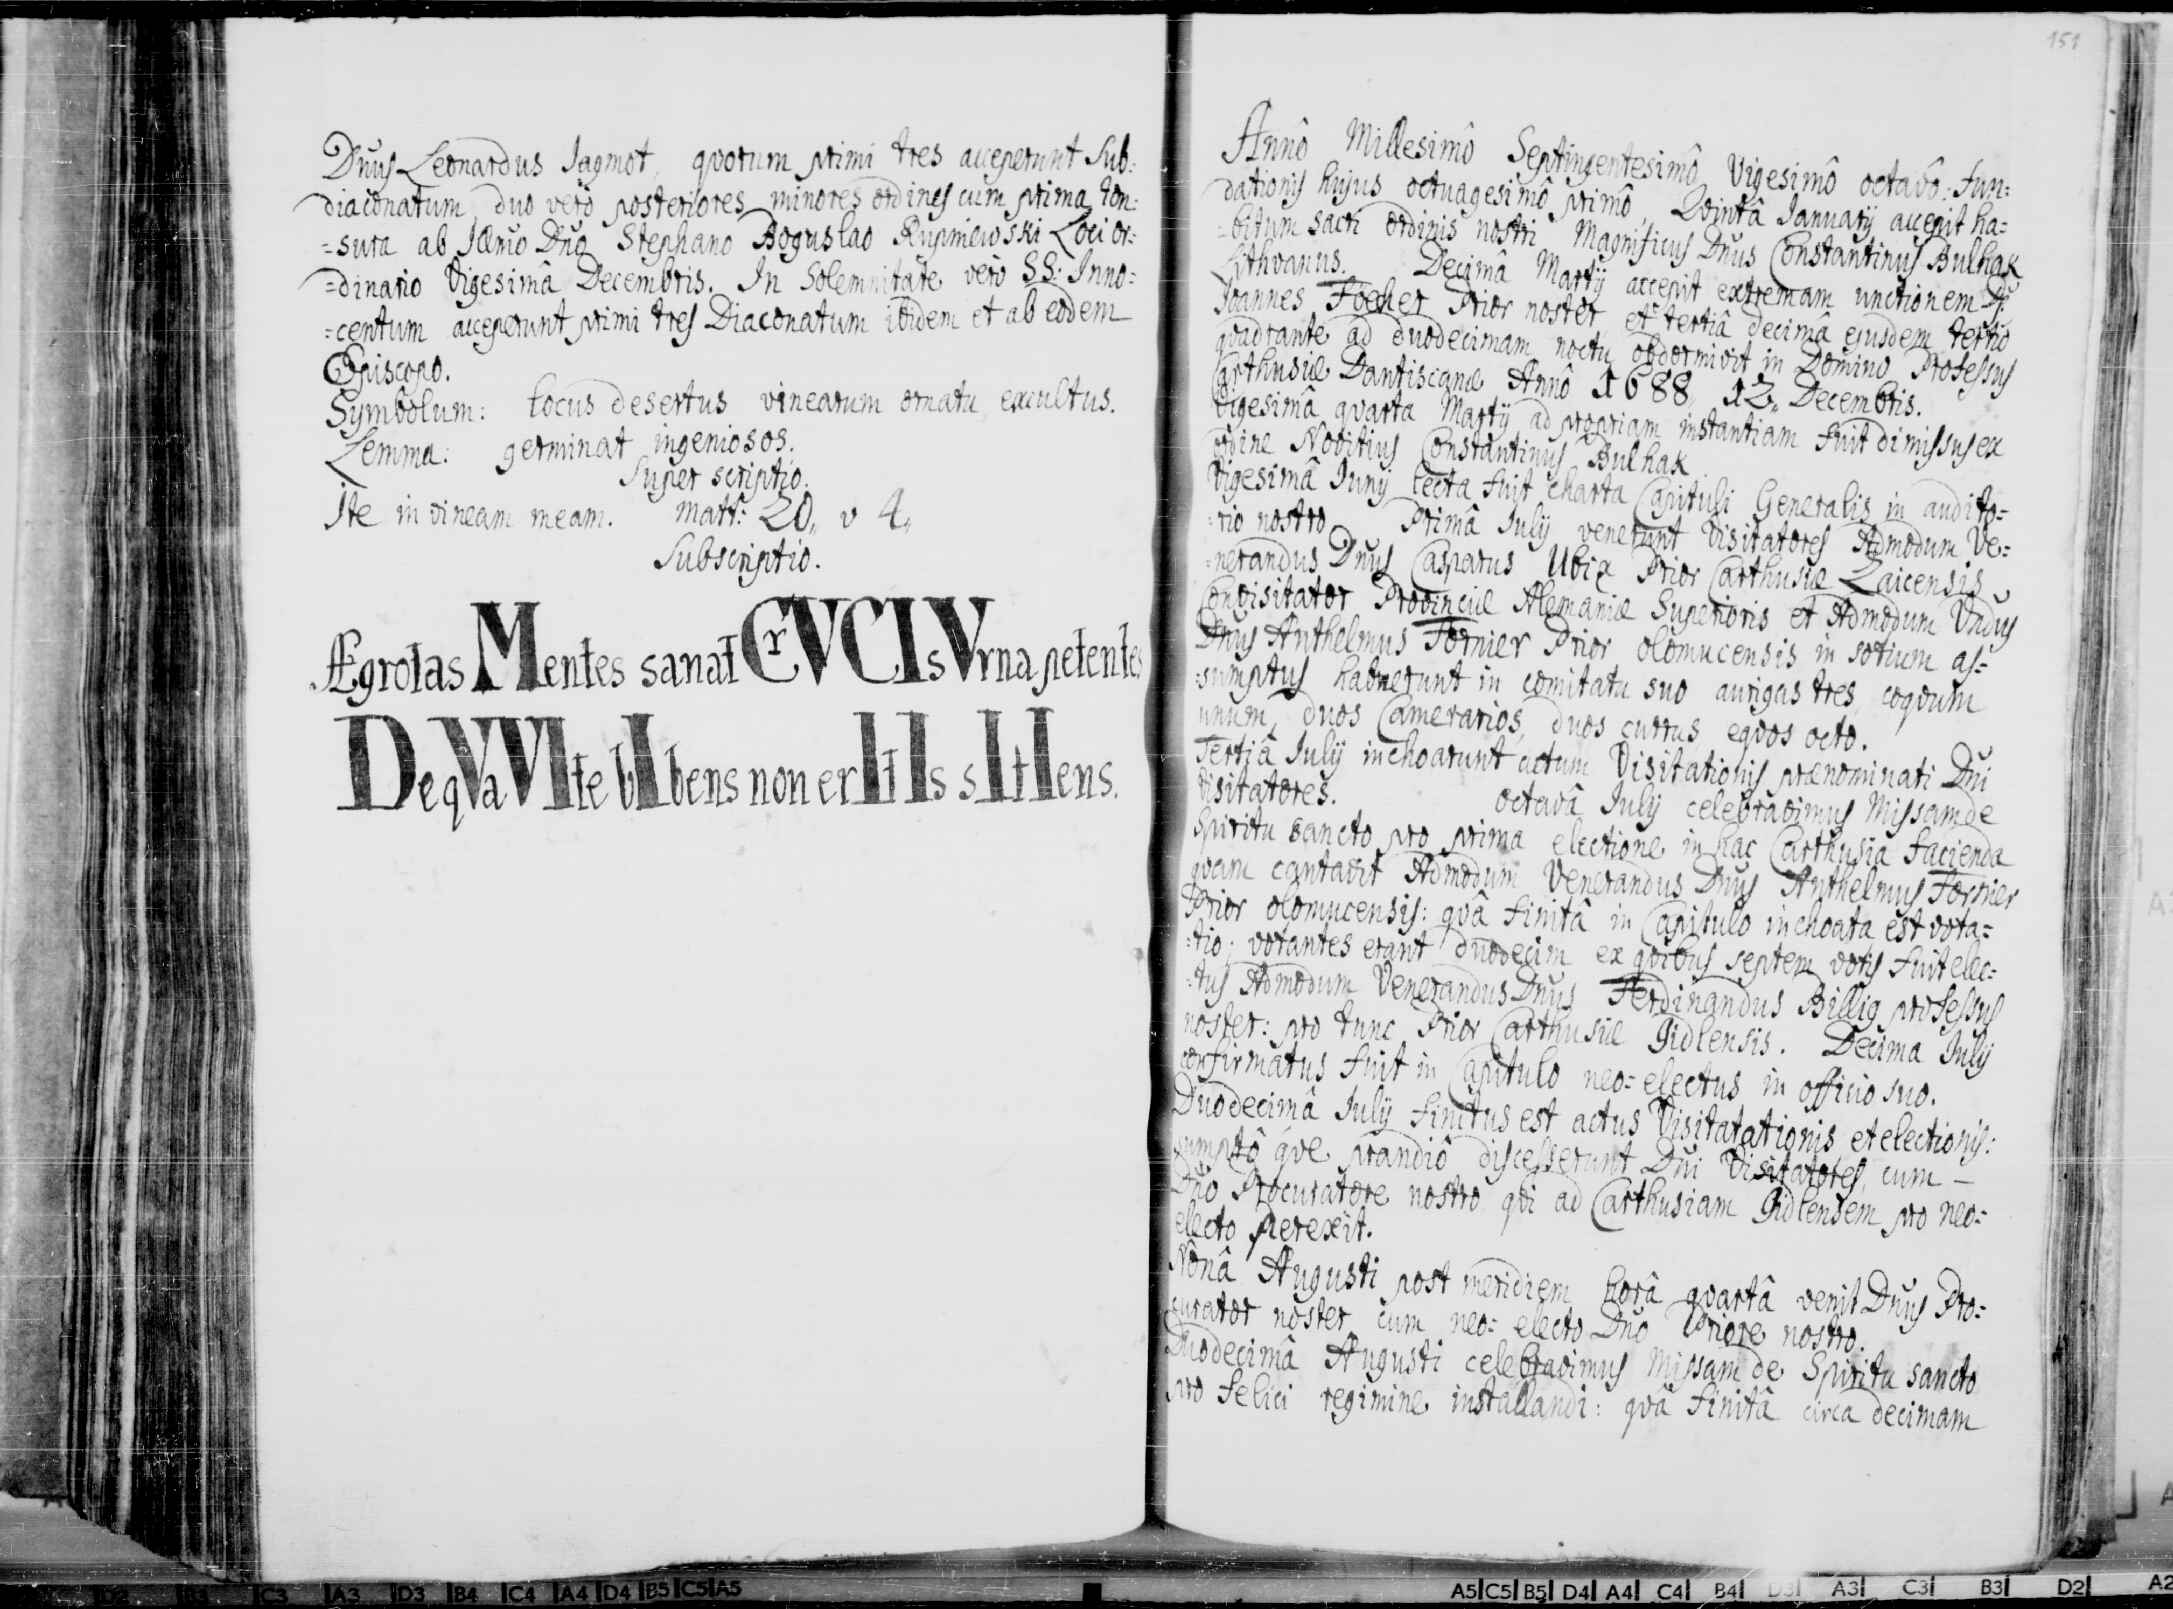 Dnus Leonardus Jagmot, quorum primi tres acceperunt Sub:
diaconatum, duo verò posteriores minores ordines cum prima ton:
=sura ab Illmo Dno Stephano Boguslao Rupniewski Loci or:
=dinario Vigesimâ Decembris. In Solemnitate verò SS: Inno=
=centum acceperunt primi tres Diaconatum ibidem et ab eodem
Episcopo.
Symbolum: Locus desertus vinearum ornatu excultus.
Lemma: germinat ingeniosos.
Super scriptio.
Ite in vineam meam. Matt: 20,, v 4,,
Subscriptio.
Ægrotas Mentes sanat CrVCIs Vrna petentes
De qVa VIte bIbens non erItIs sItIens.
151
Annô Millesimô Septingentesimô Vigesimô octavô: Fun=
dationis hujus octuagesimô primô, Qvintâ Januarij accepit ha=
=bitum sacri ordinis nostri Magnificus Dnus Constantinus Bulhak
Lithvanus. Decimâ Martij accepit extremam unctionem
Joannes Föcher Prior noster et tertiâ decimâ ejusdem tertio
qvadrante ad duodecimam noctu obdormivit in Domino Professus
Carthusiæ Dantiscanæ Annô 1688,, 12,, Decembris.
Vigesimâ qvarta Martij ad propriam instantiam fuit dimissus ex
ordine Novitius Constantinus Bulhak
Vigesimâ Junij lecta fuit charta Capituli Generalis in audito=
=rio nostro Primâ July venerunt Visitatores Admodum Ve=
=nerandus Dnus Casparus Ubix Prior Carthusiæ Zaicensis
Convisitator Provinciæ Alemaniæ Superioris et Admodum Vndus
Dnus Anthelmus Fornier Prior olomucensis in sotium as=
=sumptus habuerunt in comitatu suo aurigas tres, coqvum
unum, duos Camerarios, duos currus, eqvos octo.
Tertiâ July inchoarunt actum Visitationis prænominati Dni
Visitatores. octavâ July celebravimus Missam de
Spiritu sancto pro prima electione in hac Carthusia facienda
qvam cantavit Admodum Venerandus Dnus Anthelmus Fornier
Prior olomucensis: qvâ finitâ in Capitulo inchoata est vota=
=tio; votantes erant duodecim ex qvibus septem votis fuit elec=
=tus Admodum Venerandus Dnus Ferdinandus Billig professus
noster: pro tunc Prior Carthusiæ Gidlensis. Decima July
confirmatus fuit in Capitulo neo=electus in officio suo.
Duodecimâ July finitus est actus Visitatationis et electionis:
sumptô qve prandiô discesserunt Dni Visitatores, cum –
Dno Procuratore nostro qvi ad Carthusiam Gidlensem pro neo=
electo perexit.
Nonâ Augusti post meridiem horâ qvartâ venit Dnus Pro=
curator noster cum neo= electo Dno Priore nostro.
Duodecimâ Augusti celebravimus Missam de Spiritu sancto
pro felici regimine installandi: qvâ finitâ circa decimam